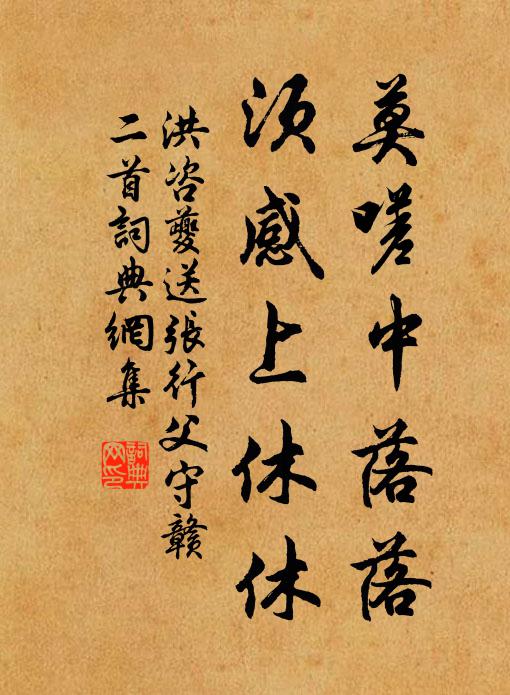 莫嗟中落落
須感上休休
洪咨夔送張行父守贛
二首詞典網集
詞典
網印